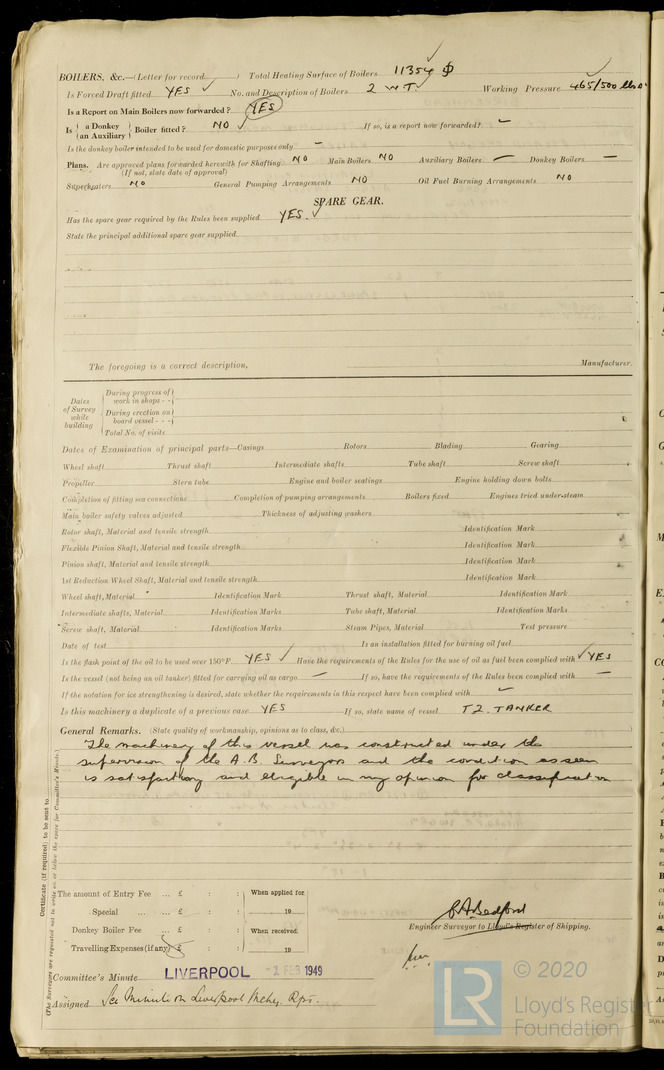 BOILERS, &c.—(Letter for record ) Total Heating Surface of Boilers 11354
Is Forced Draft fitted YES No. and Description of Boilers 2 W.T. Working Pressure 465/500 lbs
Is a Report on Main Boilers now forwarded? YES
Is { a Donkey / an Auxiliary } Boiler fitted? NO If so, is a report now forwarded? —
Is the donkey boiler intended to be used for domestic purposes only —
Plans. Are approved plans forwarded herewith for Shafting NO Main Boilers NO Auxiliary Boilers — Donkey Boilers —
(If not, state date of approval)
Superheaters NO General Pumping Arrangements NO Oil Fuel Burning Arrangements NO
SPARE GEAR.
Has the spare gear required by the Rules been supplied YES.
State the principal additional spare gear supplied
The foregoing is a correct description, Manufacturer.
Dates of Survey while building
During progress of work in shops - -
During erection on board vessel - - -
Total No. of visits
Dates of Examination of principal parts—Casings Rotors Blading Gearing
Wheel shaft Thrust shaft Intermediate shafts Tube shaft Screw shaft
Propeller Stern tube Engine and boiler seatings Engine holding down bolts
Completion of fitting sea connections Completion of pumping arrangements Boilers fixed Engines tried under steam
Main boiler safety valves adjusted Thickness of adjusting washers
Rotor shaft, Material and tensile strength Identification Mark
Flexible Pinion Shaft, Material and tensile strength Identification Mark
Pinion shaft, Material and tensile strength Identification Mark
1st Reduction Wheel Shaft, Material and tensile strength Identification Mark
Wheel shaft, Material Identification Mark Thrust shaft, Material Identification Mark
Intermediate shafts, Material Identification Marks Tube shaft, Material Identification Marks
Screw shaft, Material Identification Marks Steam Pipes, Material Test pressure
Date of test Is an installation fitted for burning oil fuel
Is the flash point of the oil to be used over 150°F. YES Have the requirements of the Rules for the use of oil as fuel been complied with YES
Is the vessel (not being an oil tanker) fitted for carrying oil as cargo — If so, have the requirements of the Rules been complied with —
If the notation for ice strengthening is desired, state whether the requirements in this respect have been complied with
Is this machinery a duplicate of a previous case YES If so, state name of vessel T2. TANKER
General Remarks. (State quality of workmanship, opinions as to class, &c.)
The machinery of this vessel was constructed under the
supervision of the A.B. Surveyors and the condition as seen
is satisfactory and eligible in my opinion for classification
Certificate (if required) to be sent to
(The Surveyors are requested not to write on or below the space for Committee's Minute.)
The amount of Entry Fee ... £ : : When applied for
Special ... ... £ : : 19
Donkey Boiler Fee ... £ : : When received,
Travelling Expenses (if any) £ : : 19
Engineer Surveyor to Lloyd's Register of Shipping.
Committee's Minute LIVERPOOL -1 FEB 1949
Assigned See Minute on Liverpool Mchy. Rpt.
© 2020
LR Lloyd's Register
Foundation